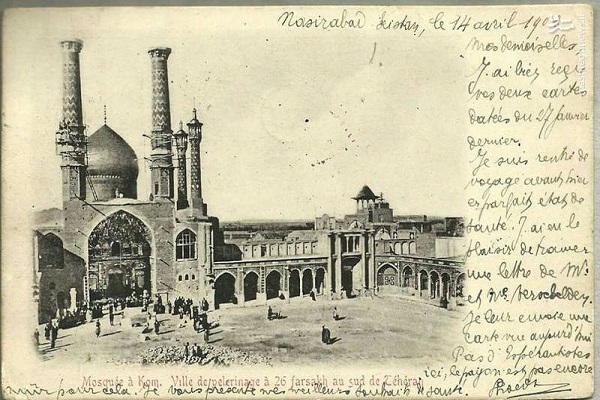 Nasirabad Sistan, le 14 avril 190
Mesdemoiselles
J'ai bien reçu
vos deux cartes
datées du 27 Janvier
dernier.
Je suis rentré de
voyage avant hier
en parfait état de
santé. J'ai eu le
plaisir de trouver
une lettre de Mr
et Me
Je leur envoie une
carte vue aujourd'hui
Pas d'Espérantistes
ici, le payon est pas encore
mûr pour cela. Je vous présente mes meilleurs souhaits de santé.
Mosquée à Kom. Ville de pelerinage à 26 farsakh au sud de Téhéran